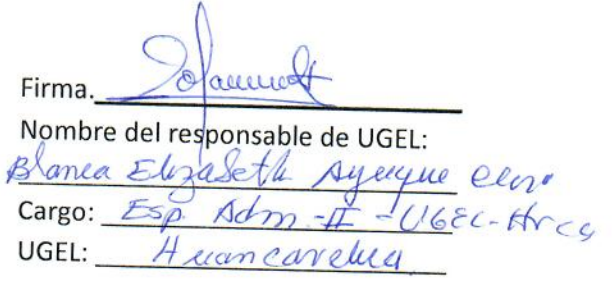 Firma.
Nombre del responsable de UGEL:
Blanca Elizabeth Ayuque
Cargo: Esp. Adm.-II - UGEL-Hvca
UGEL: Huancavelica